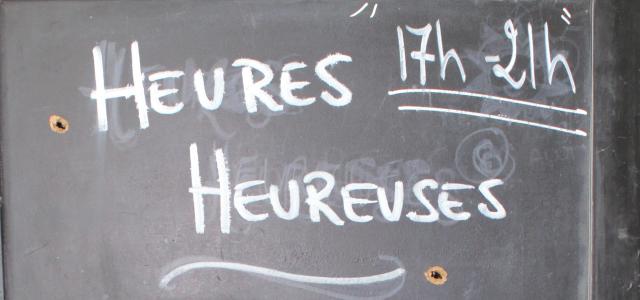 HEURES 17h-21h
HEUREUSES